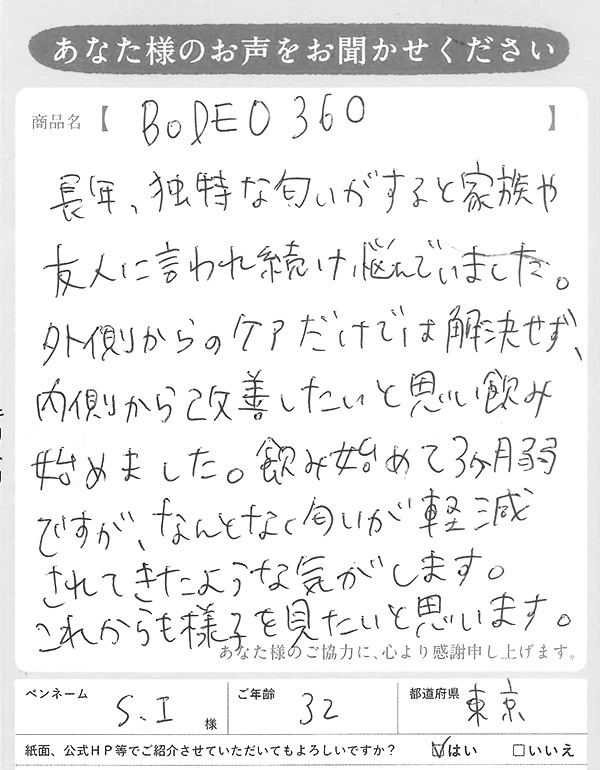 あなた様のお声をお聞かせください
商品名【 BODEO 360 】
長年、独特な匂いがすると家族や
友人に言われ続け悩んでいました。
外側からのケアだけでは解決せず、
内側から改善したいと思い飲み
始めました。飲み始めて3ヶ月弱
ですが、なんとなく匂いが軽減
されてきたような気がします。
これからも様子を見たいと思います。
あなた様のご協力に、心より感謝申し上げます。
ペンネーム S.I 様 ご年齢 32 都道府県 東京
紙面、公式HP等でご紹介させていただいてもよろしいですか? ☑はい □いいえ